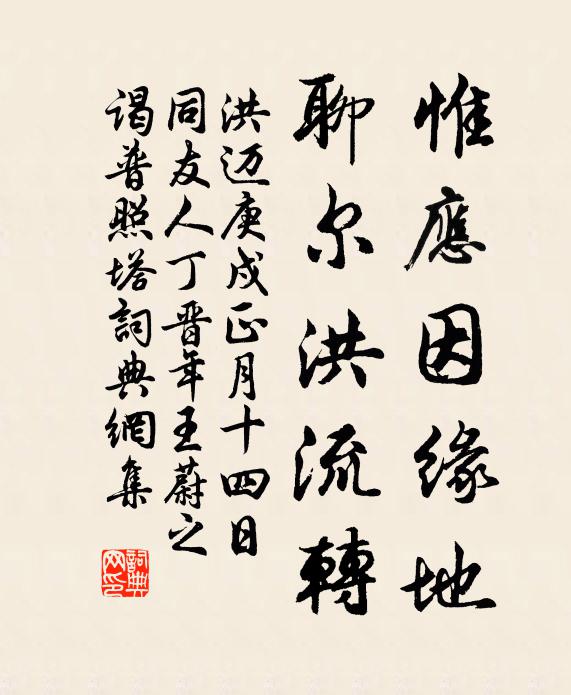 惟應因緣地
聊尔洪流轉
洪迈庚戌正月十四日
同友人丁晋年王蔚之
谒普照塔詞典網集
詞典
网印